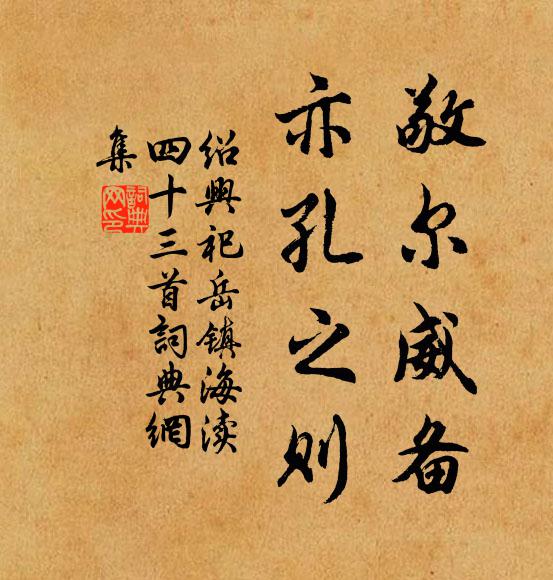 敬尔威备
亦孔之则
绍興祀岳镇海渎
四十三首詞典網
集
詞典網印